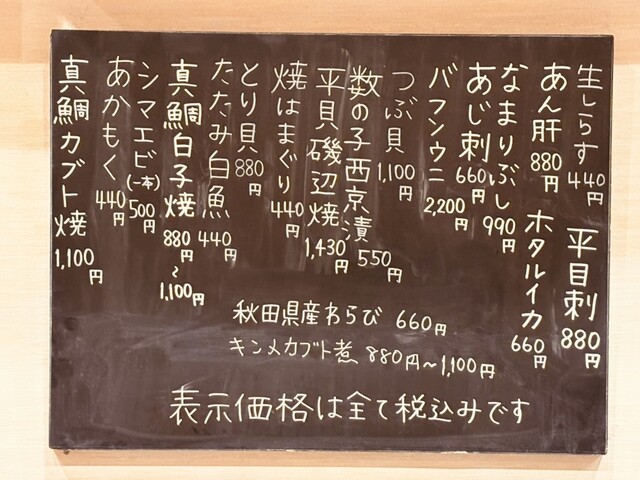 生しらす 440円
平目刺 880円
あん肝 880円
ホタルイカ 660円
なまりぶし 990円
あじ刺 660円
バフンウニ 2,200円
つぶ貝 1,100円
数の子西京漬 550円
平貝磯辺焼 1,430円
焼はまぐり 440円
とり貝 880円
たたみ白魚 440円
真鯛白子焼 880円~1,100円
シマエビ(一本) 500円
あかもく 440円
真鯛カブト焼 1,100円
秋田県産わらび 660円
キンメカブト煮 880円~1,100円
表示価格は全て税込みです